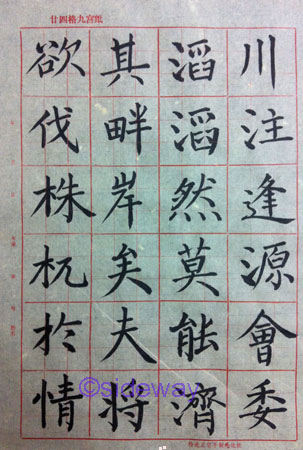 廿四格九宮紙
川注逢源會委
滔滔然莫能濟
其畔岸矣夫將
欲伐株杌於情
©sideway